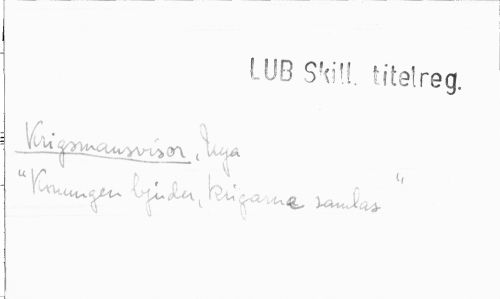 LUB Skill. titelreg.
Krigsmansvisor, Nya
"Konungen bjuder, krigarne samlas"